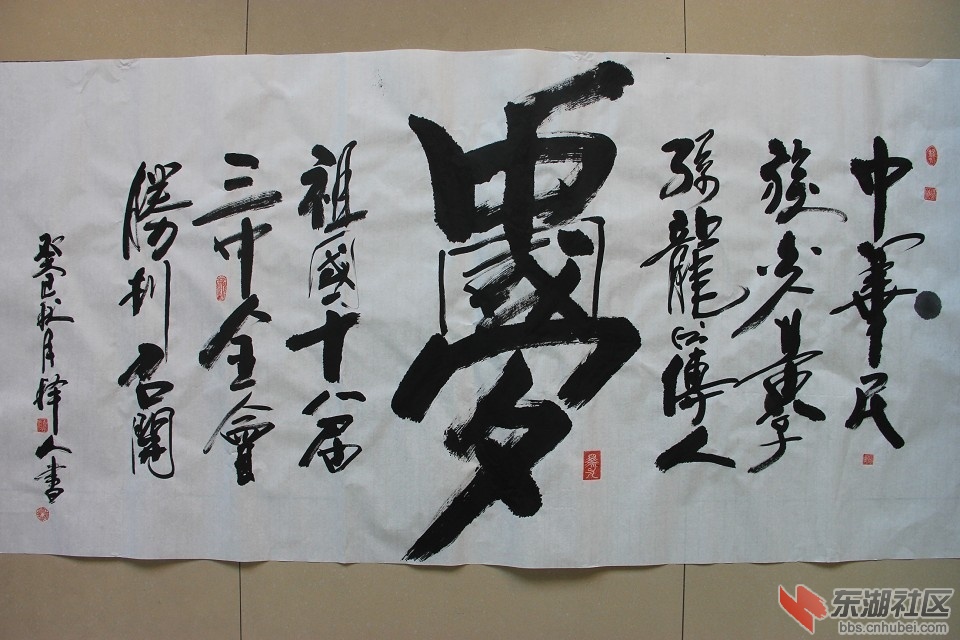 中華民
族炎黃子
孫龍的傳人
中國夢
祖國十八届
三中全會
勝利召開
癸巳秋月 人書
东湖社区
bbs.cnhubei.com